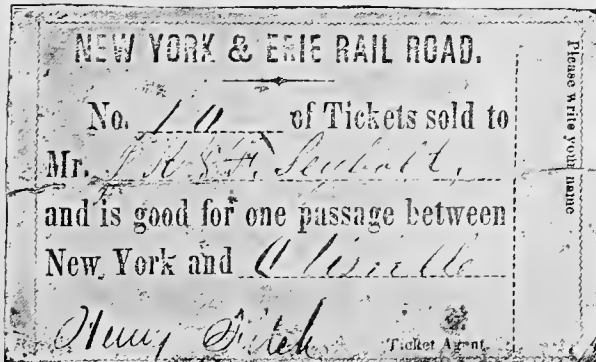 NEW YORK & ERIE RAIL ROAD.
No. 10 of Tickets sold to
Mr. Seybolt,
and is good for one passage between
New York and Otisville
Henry Fitch Ticket Agent.
Please write your name